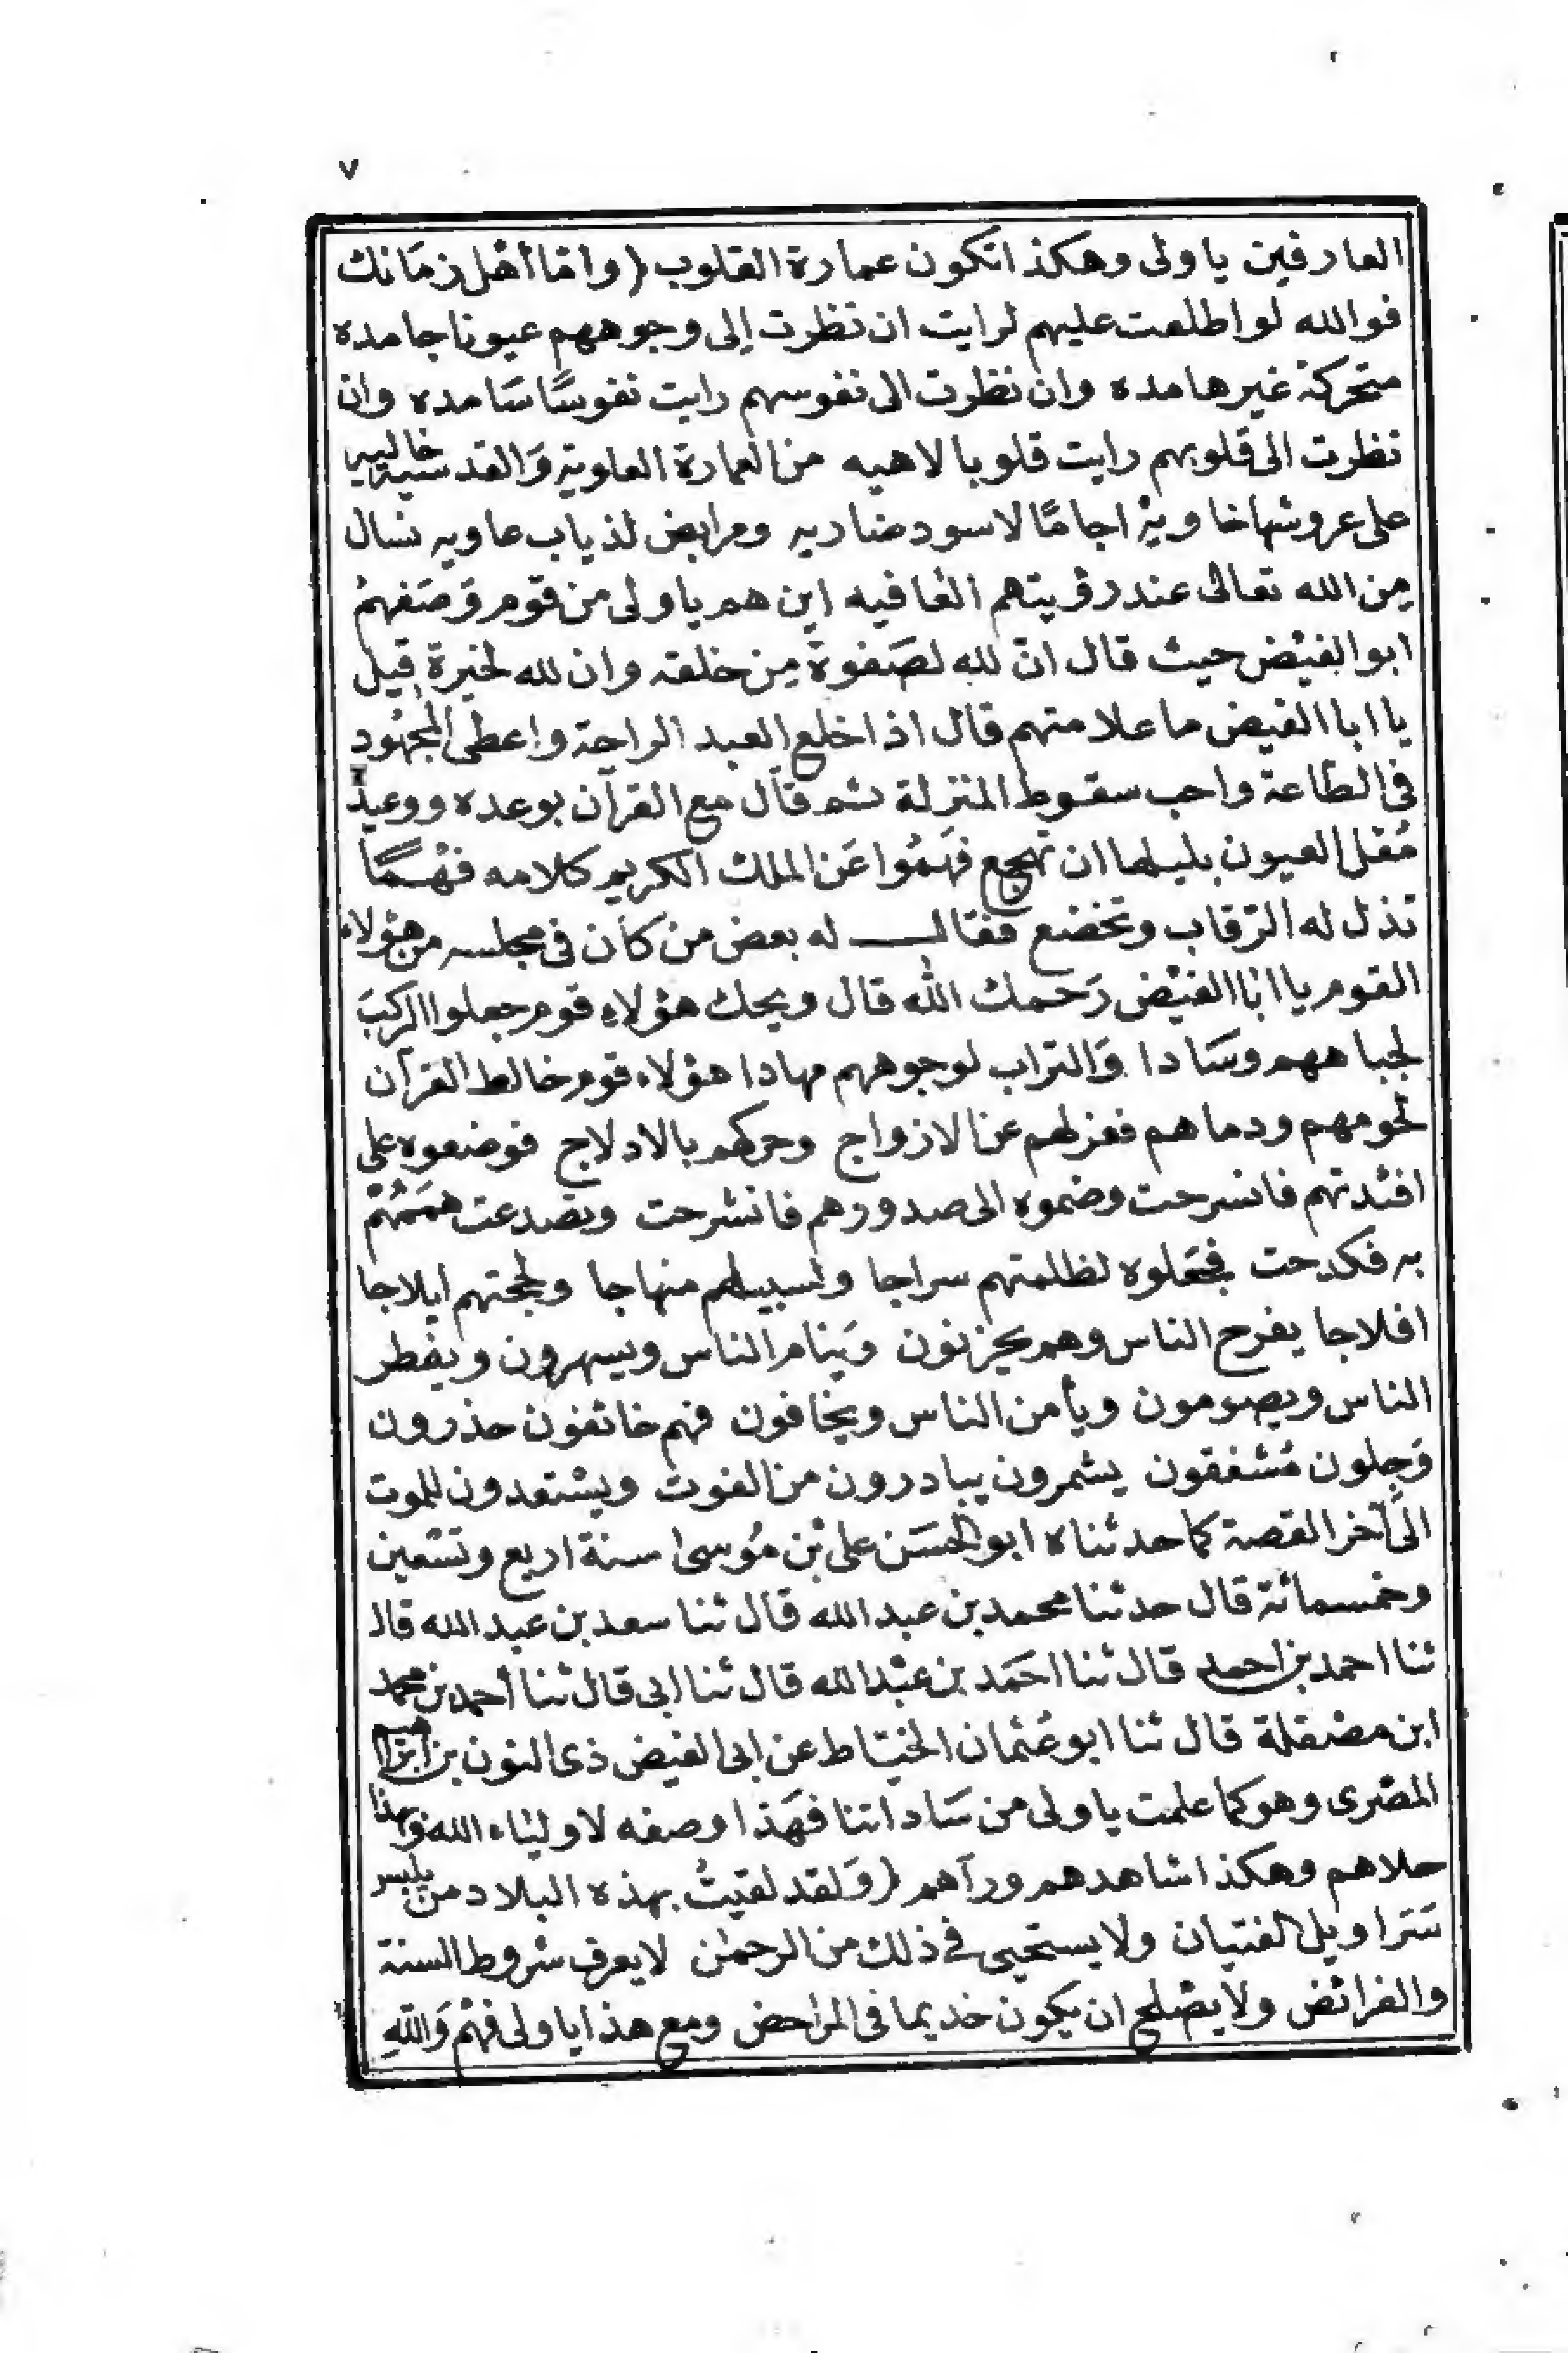 ٧
العارفين يا ولى وهكذا تكون عمارة القلوب (واما أهل زمانك
فوالله لو اطلعت عليهم لرايت ان نظرت إلى وجوههم عيونا جامده
متحركة غير هامده وان نظرت الى نفوسهم رايت نفوسًا سَامده وان
نظرت الى قلوبهم رايت قلوبا لاهيه من العمارة العلوية وَالقدسية خاليه
على عروشها خاوية اجامًا لاسود ضاريه ومرابض لذياب عاويه نسال
مِن الله تعالى عند رؤيتهم العافيه اين هم يا ولى من قوم وَصَفهمْ
ابو الفيْض حيث قال انّ لله لصَفوة مِن خلقه وان لله لخيرة قيل
يا ابا الفيض ما علامتهم قال اذا خلع العبد الراحة واعطى المجهُود
فى الطاعة واحب سقوط المنزلة ثم قال مع القرآن بوعده ووعيده
مُقل العيون بليلها ان تهجع فهَمُوا عَن الملك الكريم كلامه فهْمًا
تذل له الرّقاب وتخضع فقال له بعض من كان فى مجلسه من هؤلاء
القوم يا ابا الفيْض رَحمك الله قال ويحك هؤلاء قوم جعلوا الركبَ
لجباههم وسَادا وَالتراب لوجوههم مهادا هؤلاء قوم خالط القرآن
لحومهم ودماهم فعزلهم عن الازواج وحركهم بالادلاج فوضعوه على
افئدتهم فانسرحت وضموه الى صدورهم فانشرحت وتصدعت هممَهُمْ
به فكدحت فجَعَلوه لظلمتهم سراجا ولسبيلهم منهاجا ولحجتهم ايلاجا
افلاجا يفرح الناس وهم يحزنون وَينام الناس ويسهرون ويفطر
الناس ويصومون ويأمن الناس ويخافون فهم خائفون حذرون
وَجِلون مُشفقون يشمرون يبادرون من الفوت ويسْتعدون للموت
الى آخر القصة كما حدثناه ابو الحسَن على بْن مُوسى سنة اربع وتسْعين
وخمسمائة قال حدثنا محمد بن عبد الله قال ثنا سعد بن عبد الله قال
ثنا احمد بن احمد قال ثنا احمَد بن عبْد الله قال ثنا ابى قال ثنا أحمد بن محمد
ابن مصْقلة قال ثنا ابو عُثمان الخيّاط عن ابى الفيض ذى النون بن ابراهيم
المصْرى وهو كما علمت يا ولى من سَاداتنا فهَذا وصفه لاولياء الله وَبهذا
حلاهم وهكذا شاهدهم ورآهم (وَلقد لقيتُ بهذه البلاد من يلبس
سَرَاويل الفتيان ولا يستحيى فى ذلك من الرحمٰن لا يعرف شروط السنة
والفرائض ولا يصْلح ان يكون خديما فى المراحض ومع هذا يا ولى فهْم وَاللهِ